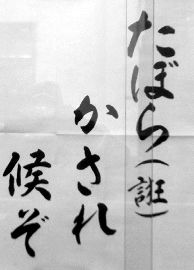 たぼら(誑)
かされ
候ぞ